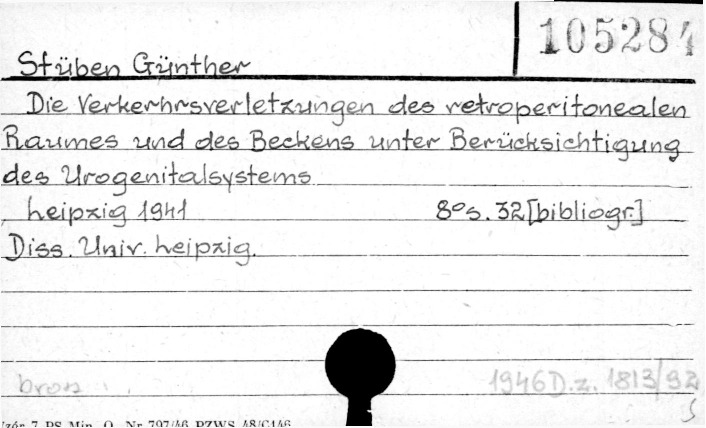 105284
Stüben Günther
Die Verkehrsverletzungen des retroperitonealen
Raumes und des Beckens unter Berücksichtigung
des Urogenitalsystems
Leipzig 1941 8° s. 32 [bibliogr.]
Diss. Univ. Leipzig.
brosz 1946 D.z. 1813/92
Wzór 7 PS Min. O. Nr 797/46 PZWS 48/C146